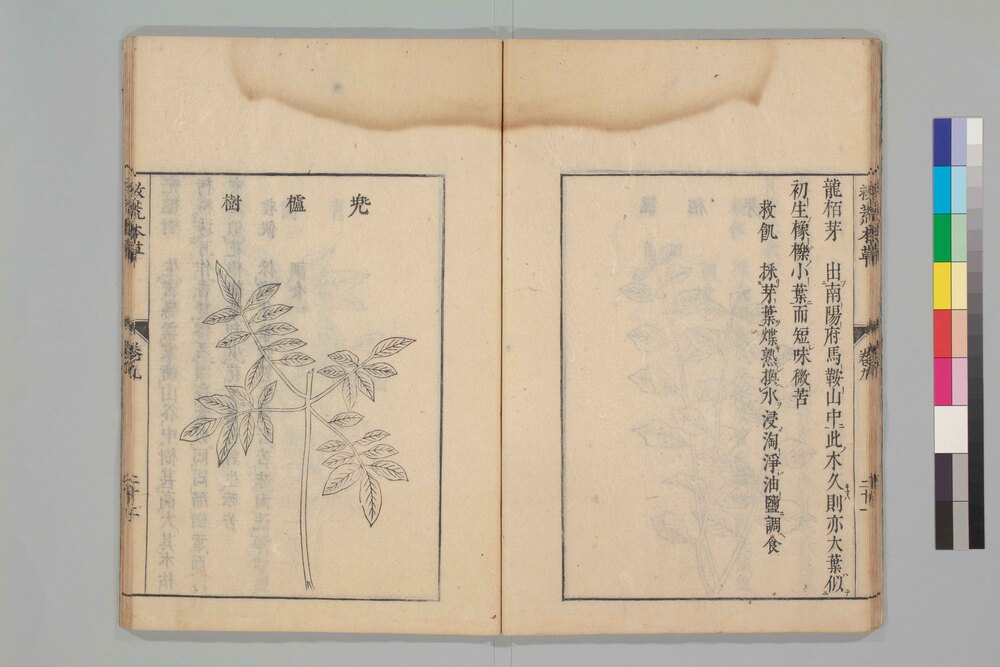 龍栢芽　出南陽府馬鞍山中此木久則亦大葉似
初生橡櫟小葉而短味微苦
救飢　採芽葉煠熟換水浸淘淨油鹽調食
救荒本草
卷九
二十一
兠櫨樹
救荒本草
卷九